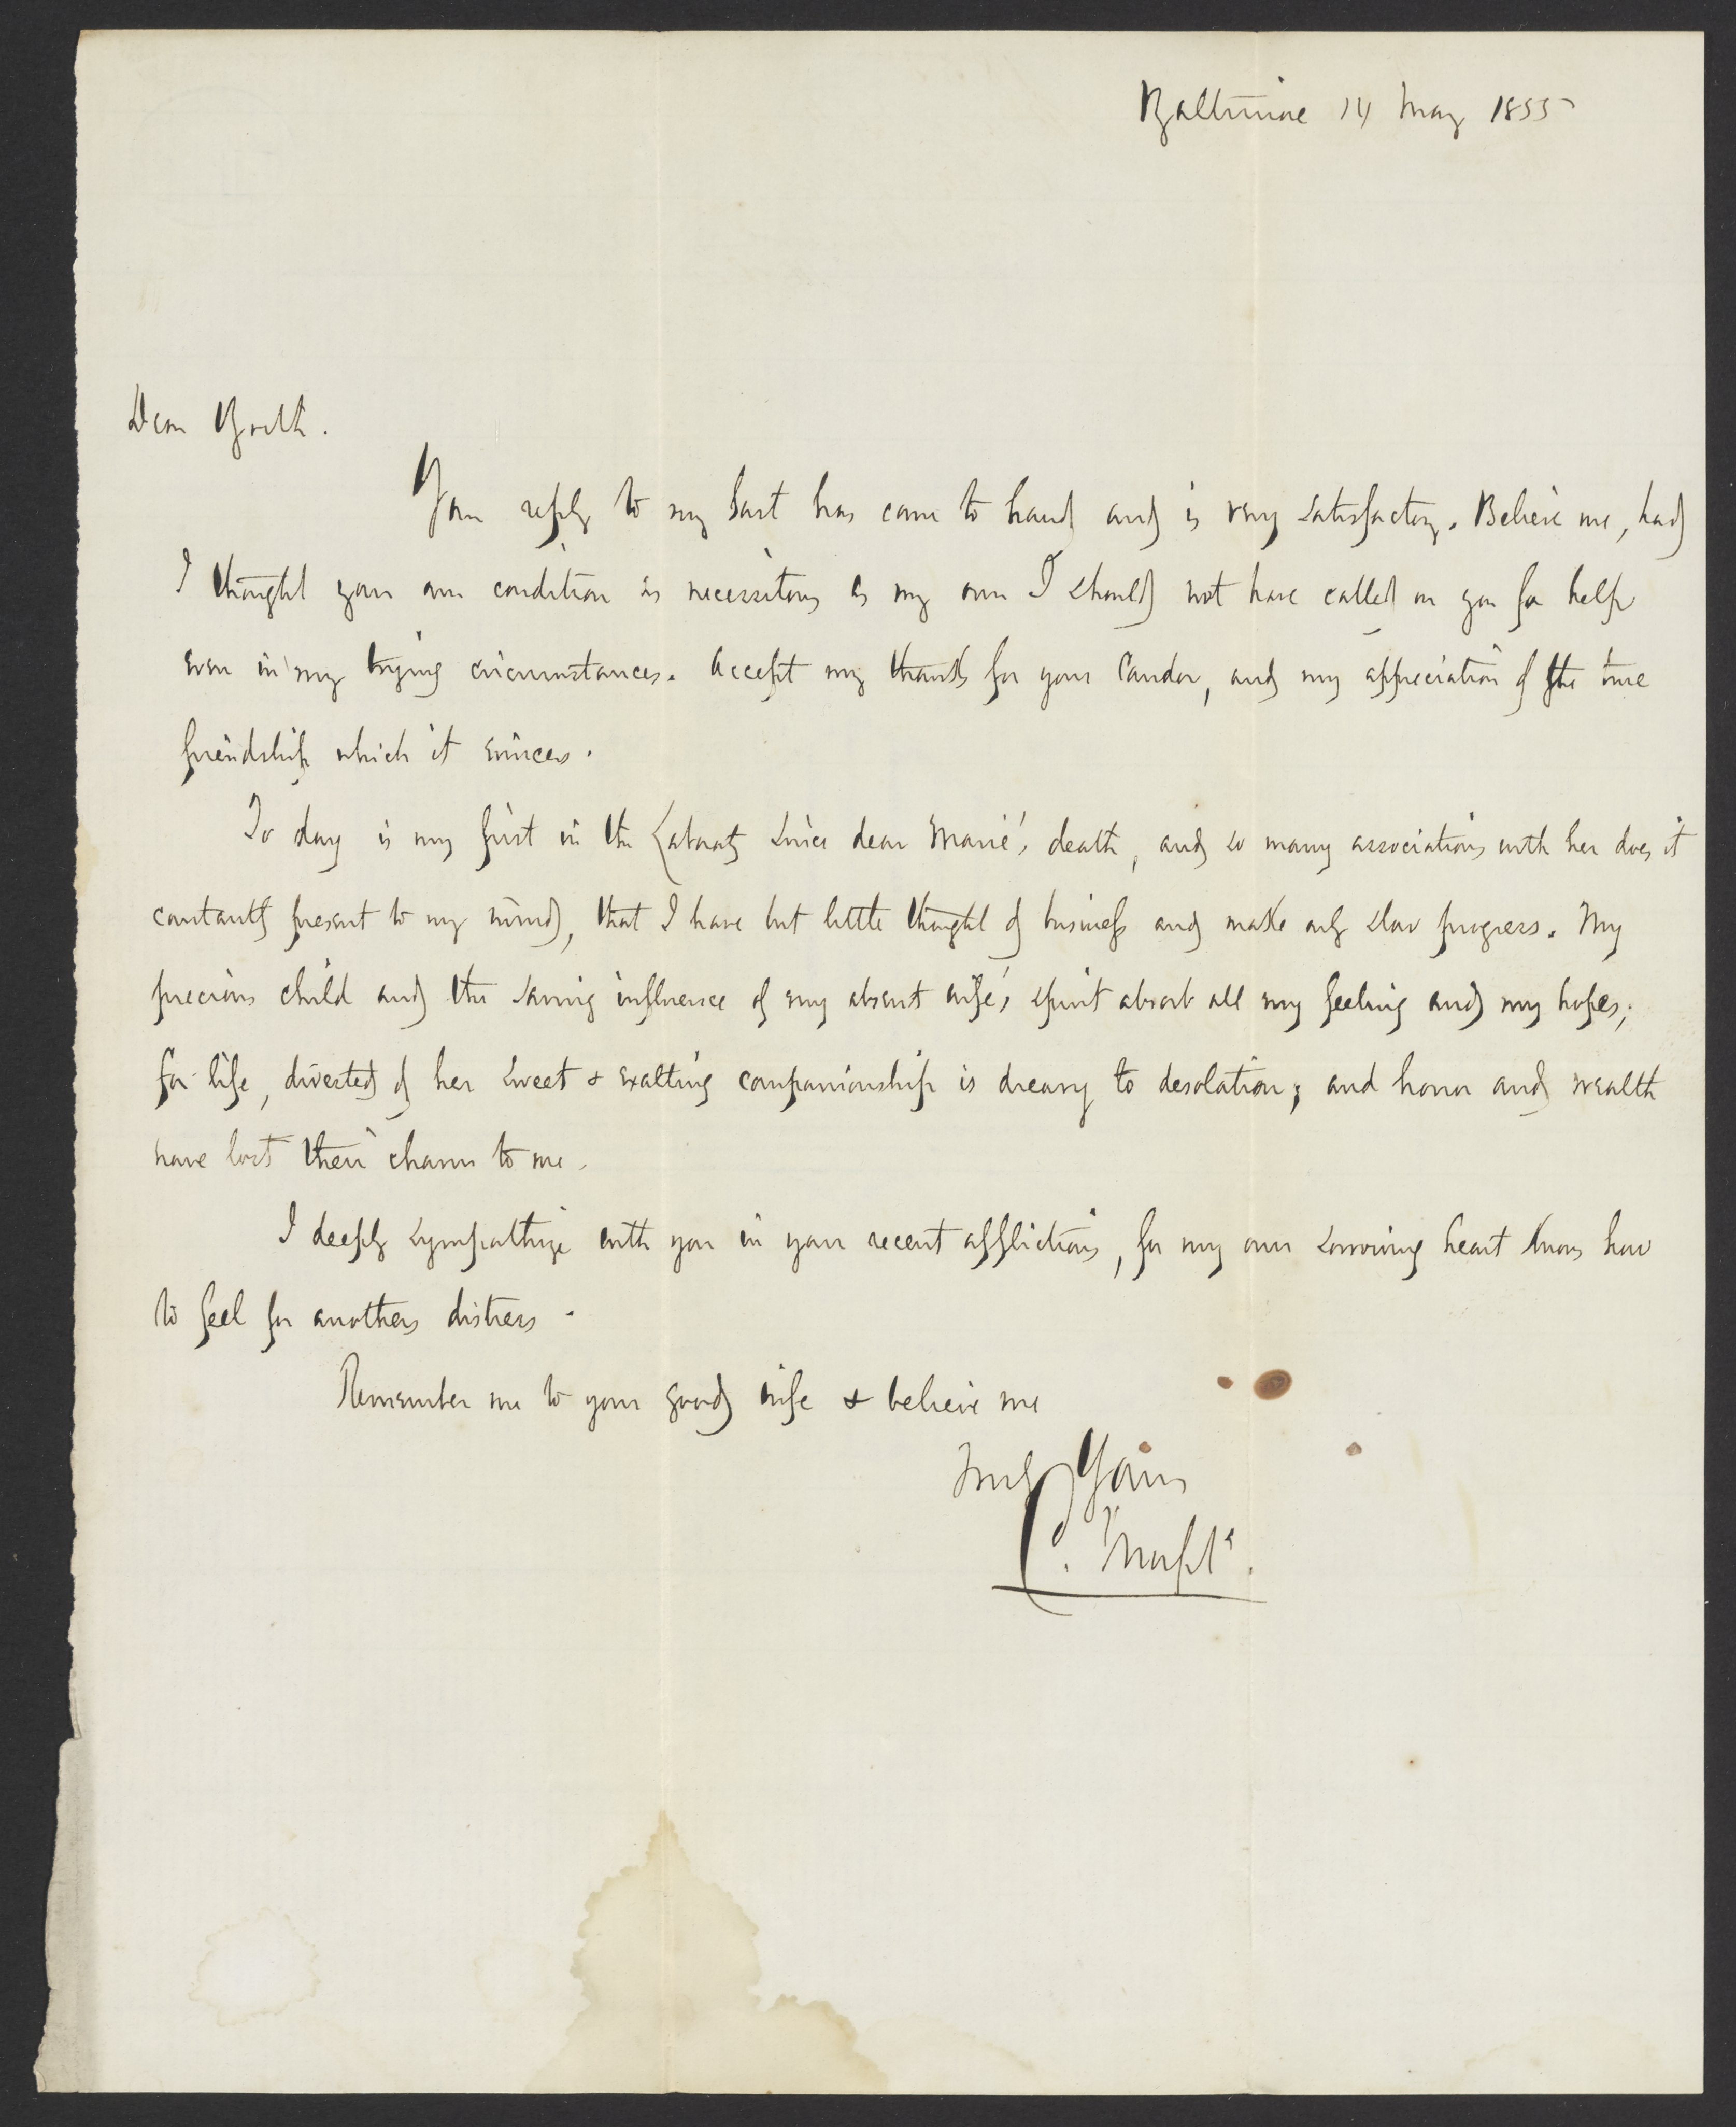 Baltimore 14 May 1855
Dear Booth.
Your reply to my last has come to hand and is very satisfactory. Believe me, had
I thought your own condition as necessitous as my own I should not have called on you for help
even in my trying circumstances. Accept my thanks for your candor, and my appreciation of the true
friendship which it evinces.
To day is my first in the Labaraty since dear Marie's death, and so many associations with her does it
constantly present to my mind, that I have but little thought of business and make only slow progress. My
precious child and the saving influence of my absent wife's spirit absorb all my feeling and my hopes;
for life, divested of her sweet & exalting companionship is dreary to desolation; and honor and wealth
have lost their charm to me.
I deeply sympathize with you in your recent afflictions, for my own sorrowing heart knows how
to feel for anothers distress.
Remember me to your good wife & believe me
Truly Yours
C. Morfit.